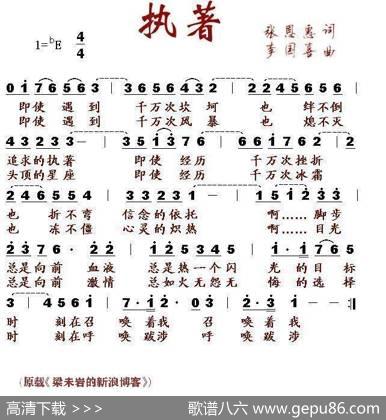 执著
张恩惠 词
1=ᵇE 4/4 李国喜 曲
0 1 7 6 5 6 1 3 3 - 3 0 5 6 4 3 3 2 2 2 4 5 6 5 6
即使 遇到 千万次坎坷 也 绊不倒
即使 遇到 千万次风暴 也 熄不灭
4 3 2 3 3 - 3 1 7 6 5 6 1 7 6 6 - 6 6 1 7 6 2
追求的执著 即使 经历 千万次挫折
头顶的星座 即使 经历 千万次冰霜
2 4 6 5 5 4 5 - 5 3 3 2 3 1 - 1 5 1 2 3 3
也 折不弯 信念的依托 啊……脚步
也 冻不僵 心灵的炽热 啊……目光
总是向前 血液 总是热一个闪 光的目标
总是向前 激情 总如火无怨无 悔的选择
3 4 5 6 1 7 1 2 0 2 7 1 1 - 1 0
时 刻在召 唤着我 召 唤着我
时 刻在呼 唤跋涉 呼 唤跋涉
(原载《梁未岩的新浪博客》)
高清下载 >>> 歌谱八六 www.gepu86.com